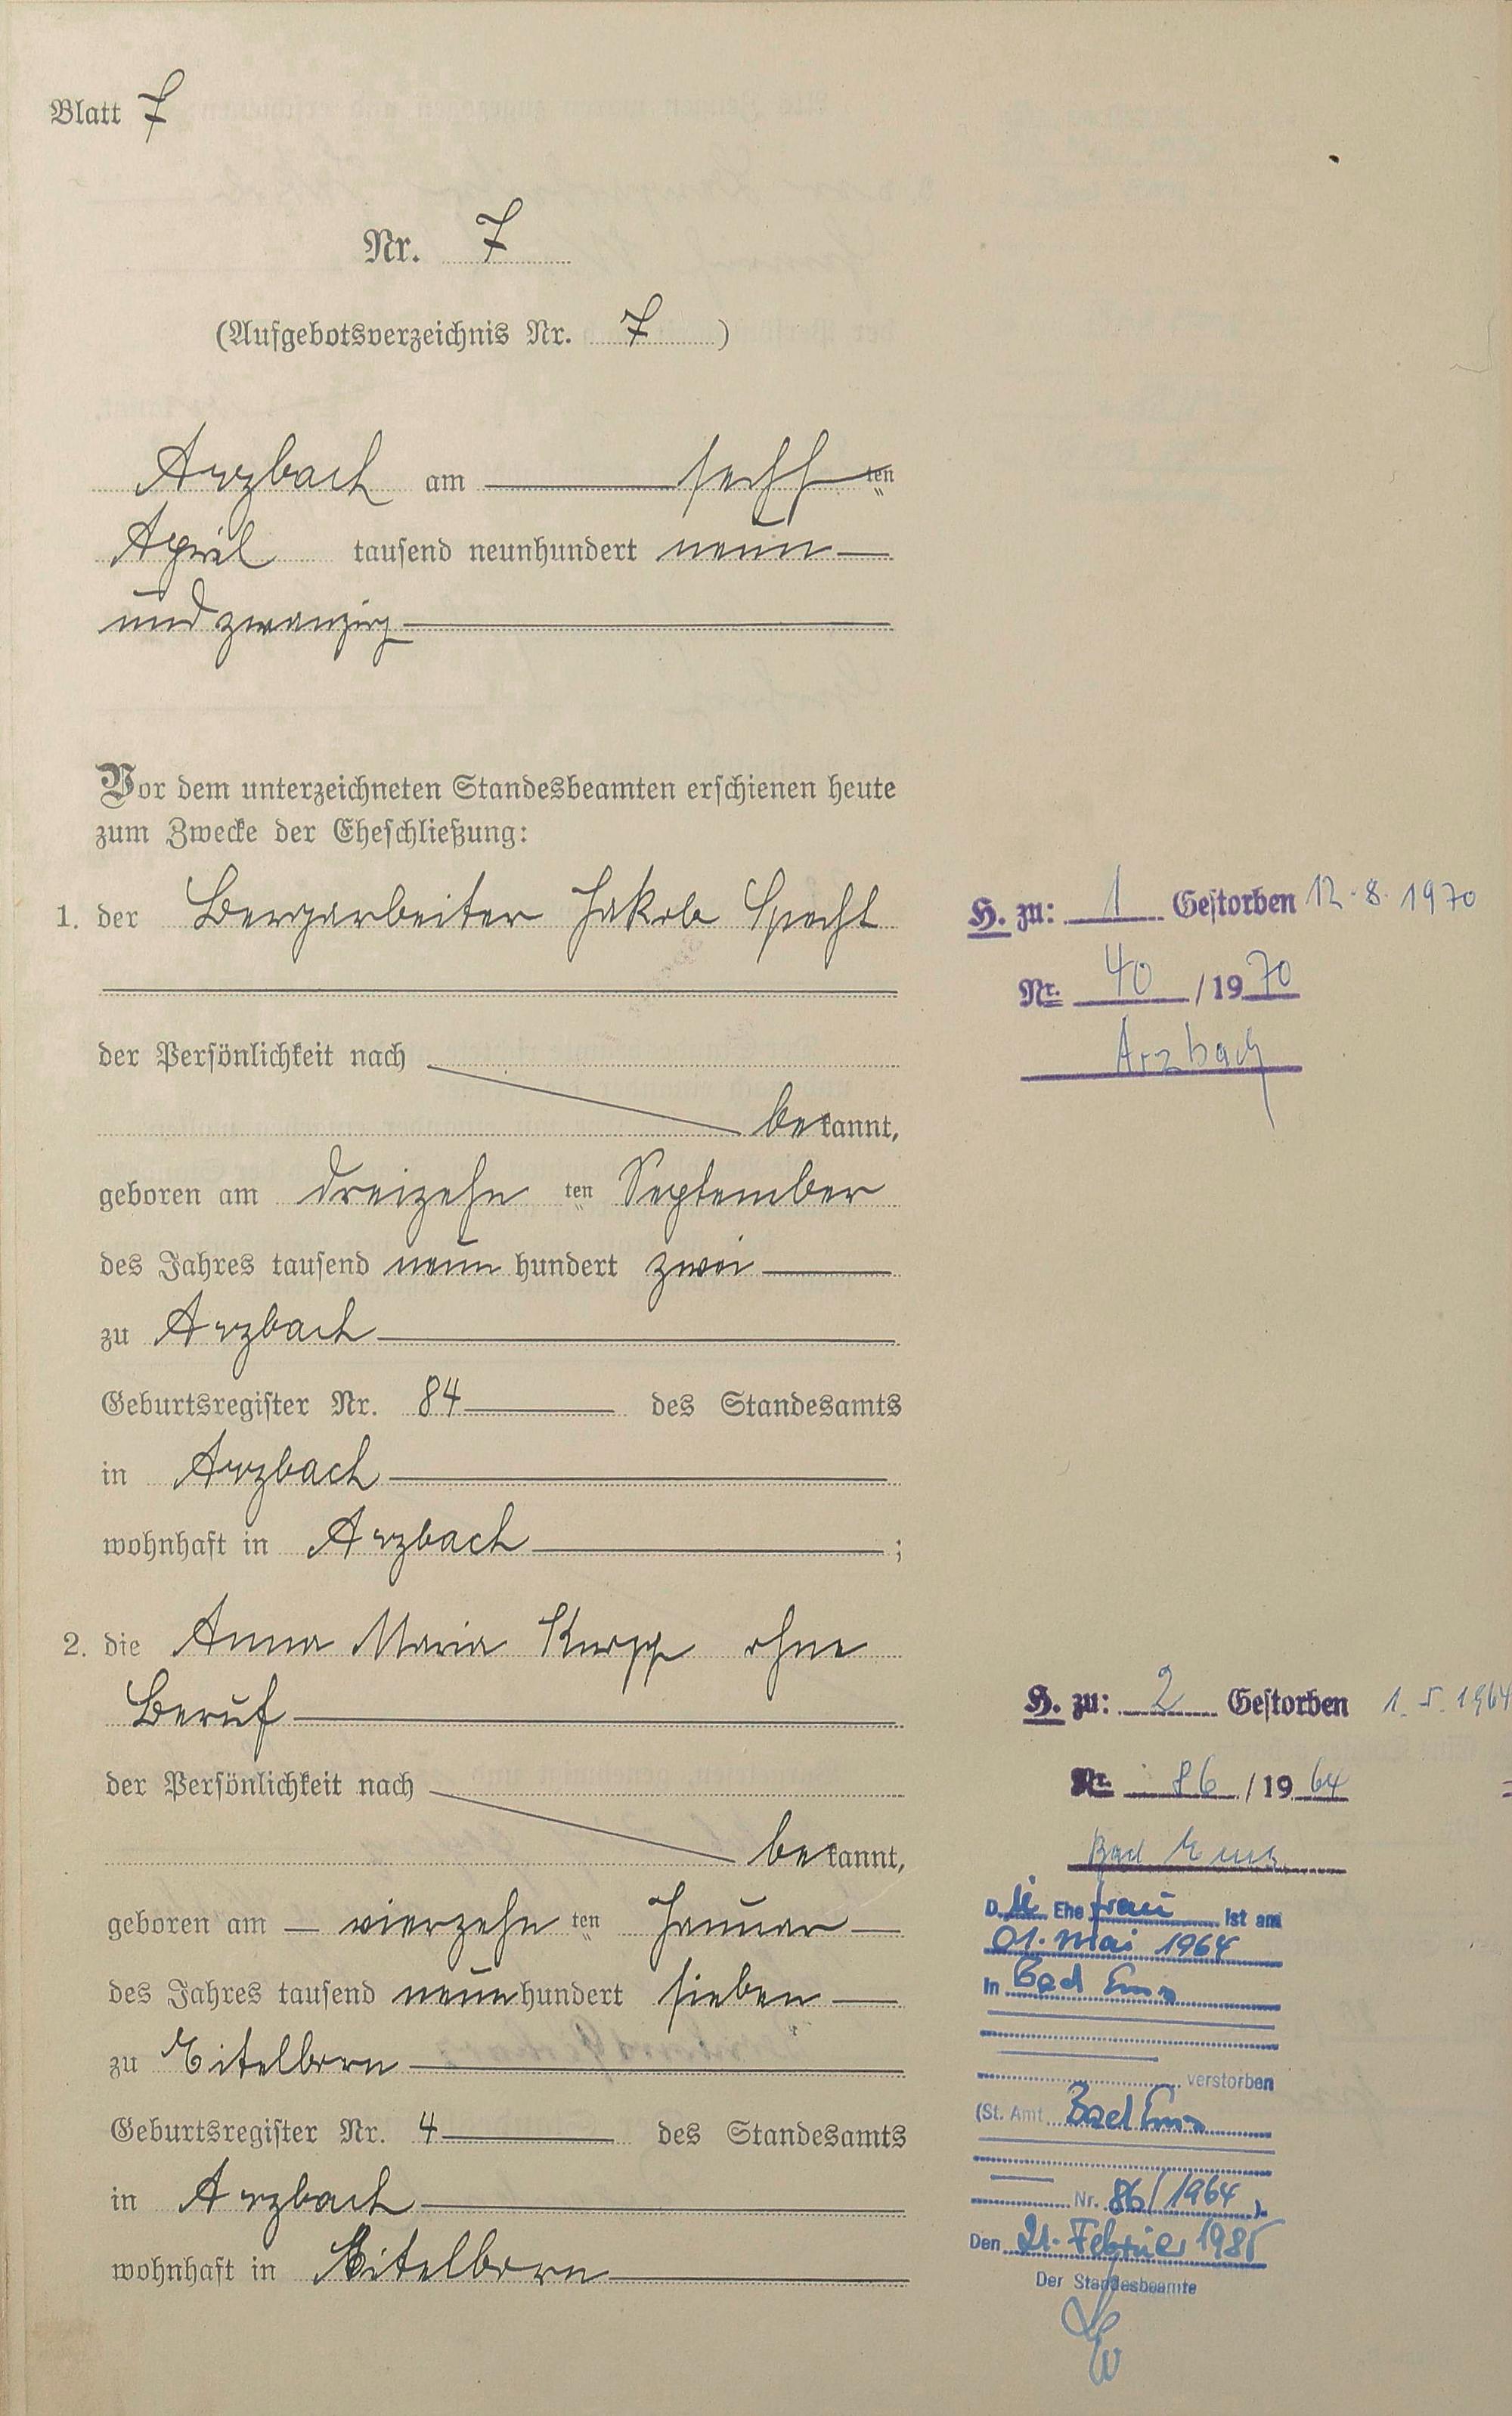 Blatt 7
Nr. 7
(Aufgebotsverzeichnis Nr. 7 )
Arzbach am sechsten
April tausend neunhundert neun
und zwanzig
Vor dem unterzeichneten Standesbeamten erschienen heute
zum Zwecke der Eheschließung:
1. der Bergarbeiter Jakob Specht
der Persönlichkeit nach
bekannt,
geboren am dreizehn ten September
des Jahres tausend neun hundert zwei
zu Arzbach
Geburtsregister Nr. 84 des Standesamts
in Arzbach
wohnhaft in Arzbach ;
2. die Anna Maria Knopp ohne
Beruf
der Persönlichkeit nach
bekannt,
geboren am vierzehn ten Januar
des Jahres tausend neun hundert sieben
zu Eitelborn
Geburtsregister Nr. 4 des Standesamts
in Arzbach
wohnhaft in Eitelborn
H. zu: 1 Gestorben 12.8.1970
Nr. 40 / 1970
Arzbach
H. zu: 2 Gestorben 1.5.1964
Nr. 86 / 1964
Bad Ems
Die Ehefrau ist am
01. Mai 1964
in Bad Ems
verstorben
(St. Amt Bad Ems
Nr. 86/1964 ).
Den 21. Februar 1985
Der Standesbeamte